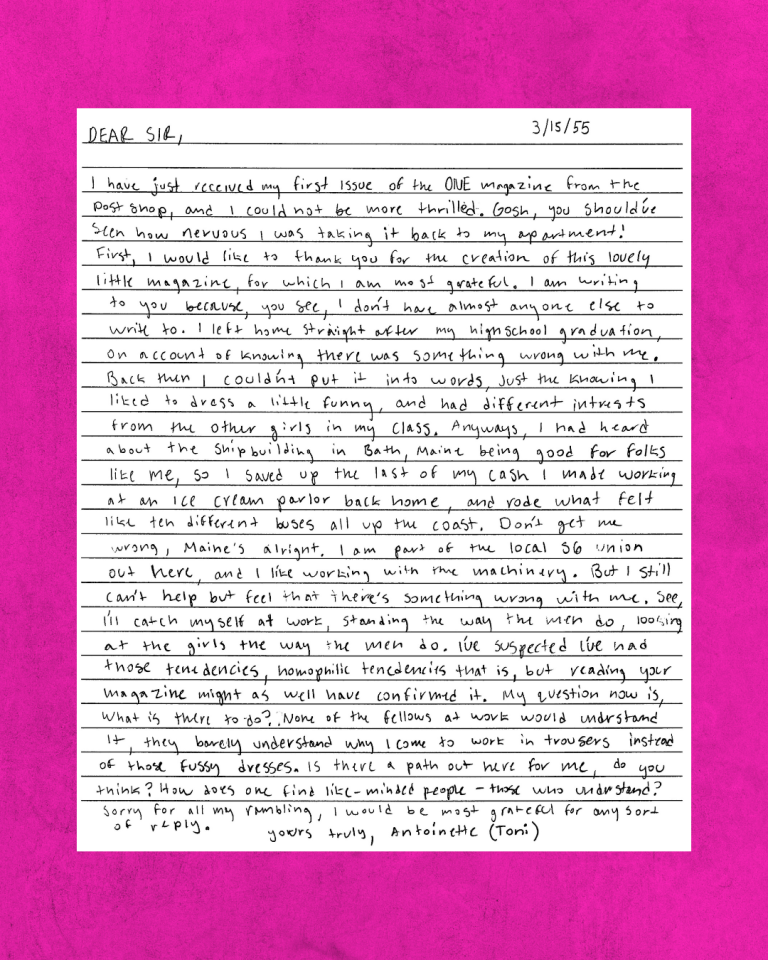 DEAR SIR,
3/15/55
I have just received my first issue of the ONE magazine from the
post shop, and I could not be more thrilled. Gosh, you should've
seen how nervous I was taking it back to my apartment!
First, I would like to thank you for the creation of this lovely
little magazine, for which I am most grateful. I am writing
to you because, you see, I don't have almost anyone else to
write to. I left home straight after my highschool graduation,
on account of knowing there was something wrong with me.
Back then I couldn't put it into words, just the knowing I
liked to dress a little funny, and had different intrests
from the other girls in my class. Anyways, I had heard
about the shipbuilding in Bath, Maine being good for folks
like me, so I saved up the last of my cash I made working
at an ice cream parlor back home, and rode what felt
like ten different buses all up the coast. Don't get me
wrong, Maine's alright. I am part of the local S6 union
out here, and I like working with the machinery. But I still
can't help but feel that there's something wrong with me. See,
I'll catch myself at work, standing the way the men do, looking
at the girls the way the men do. I've suspected I've had
those tenedencies, homophilic tenedencies that is, but reading your
magazine might as well have confirmed it. My question now is,
what is there to do? None of the fellows at work would undrstand
it, they barely understand why I come to work in trousers instead
of those fussy dresses. Is there a path out here for me, do you
think? How does one find like-minded people - those who undrstand?
Sorry for all my rambling, I would be most grateful for any sort
of reply.
yours truly, Antoinette (Toni)